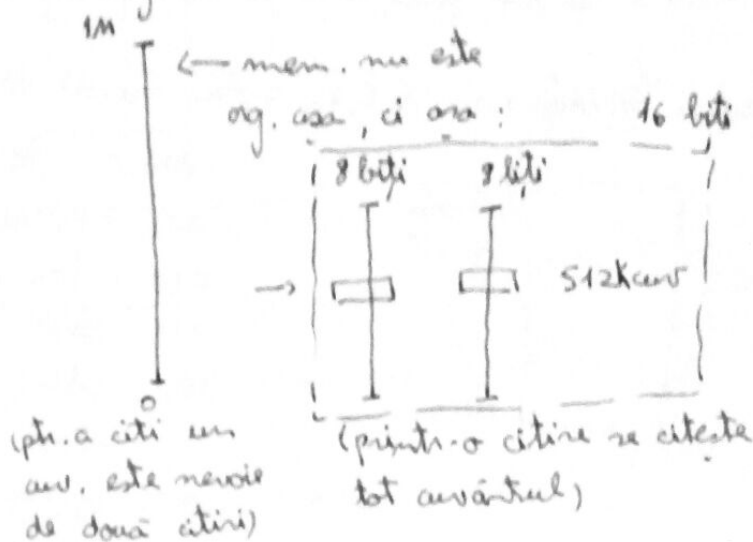 1M
← mem. nu este
org. asa, ci asa :
16 biți
8 biți
8 biți
→
512Kcuv
0
(ptr. a citi un
cuv. este nevoie
de două citiri)
(printr-o citire se citește
tot cuvântul)